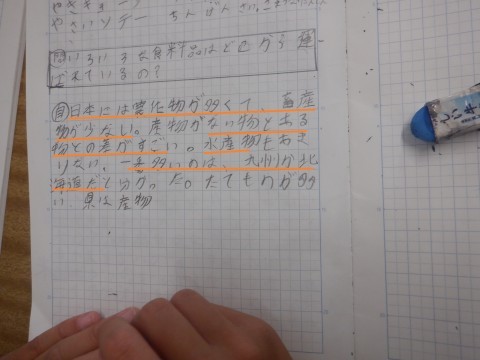 やさいソテー ちんげんさい
問いろいろな食料品はどこから運
ばれているの?
自日本には農作物が多くて、畜産
物が少ない。産物がない物とある
物との差がすごい。水産物もあま
りない。一番多いのは、九州か北
海道だと分かった。たてものが多
い県は産物